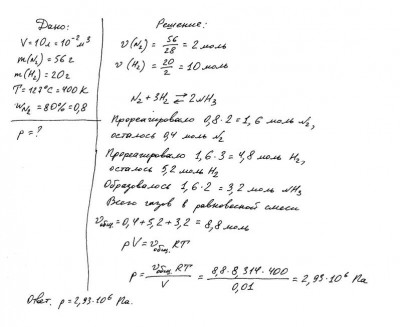 Дано:
V=10л=10⁻² м³
m(N₂)=56г
m(H₂)=20г
T=127°C=400 K
w_N₂=80%=0,8
p=?
Решение:
ν(N₂)=56/28=2 моль
ν(H₂)=20/2=10 моль
N₂+3H₂⇄2NH₃
Прореагировало 0,8·2=1,6 моль N₂,
осталось 0,4 моль N₂
Прореагировало 1,6·3=4,8 моль H₂,
осталось 5,2 моль H₂
Образовалось 1,6·2=3,2 моль NH₃
Всего газов в равновесной смеси
ν общ.=0,4+5,2+3,2=8,8 моль
pV=ν общ. RT
p=ν общ. RT/V=8,8·8,314·400/0,01=2,93·10⁶ Па
Ответ. p=2,93·10⁶ Па.